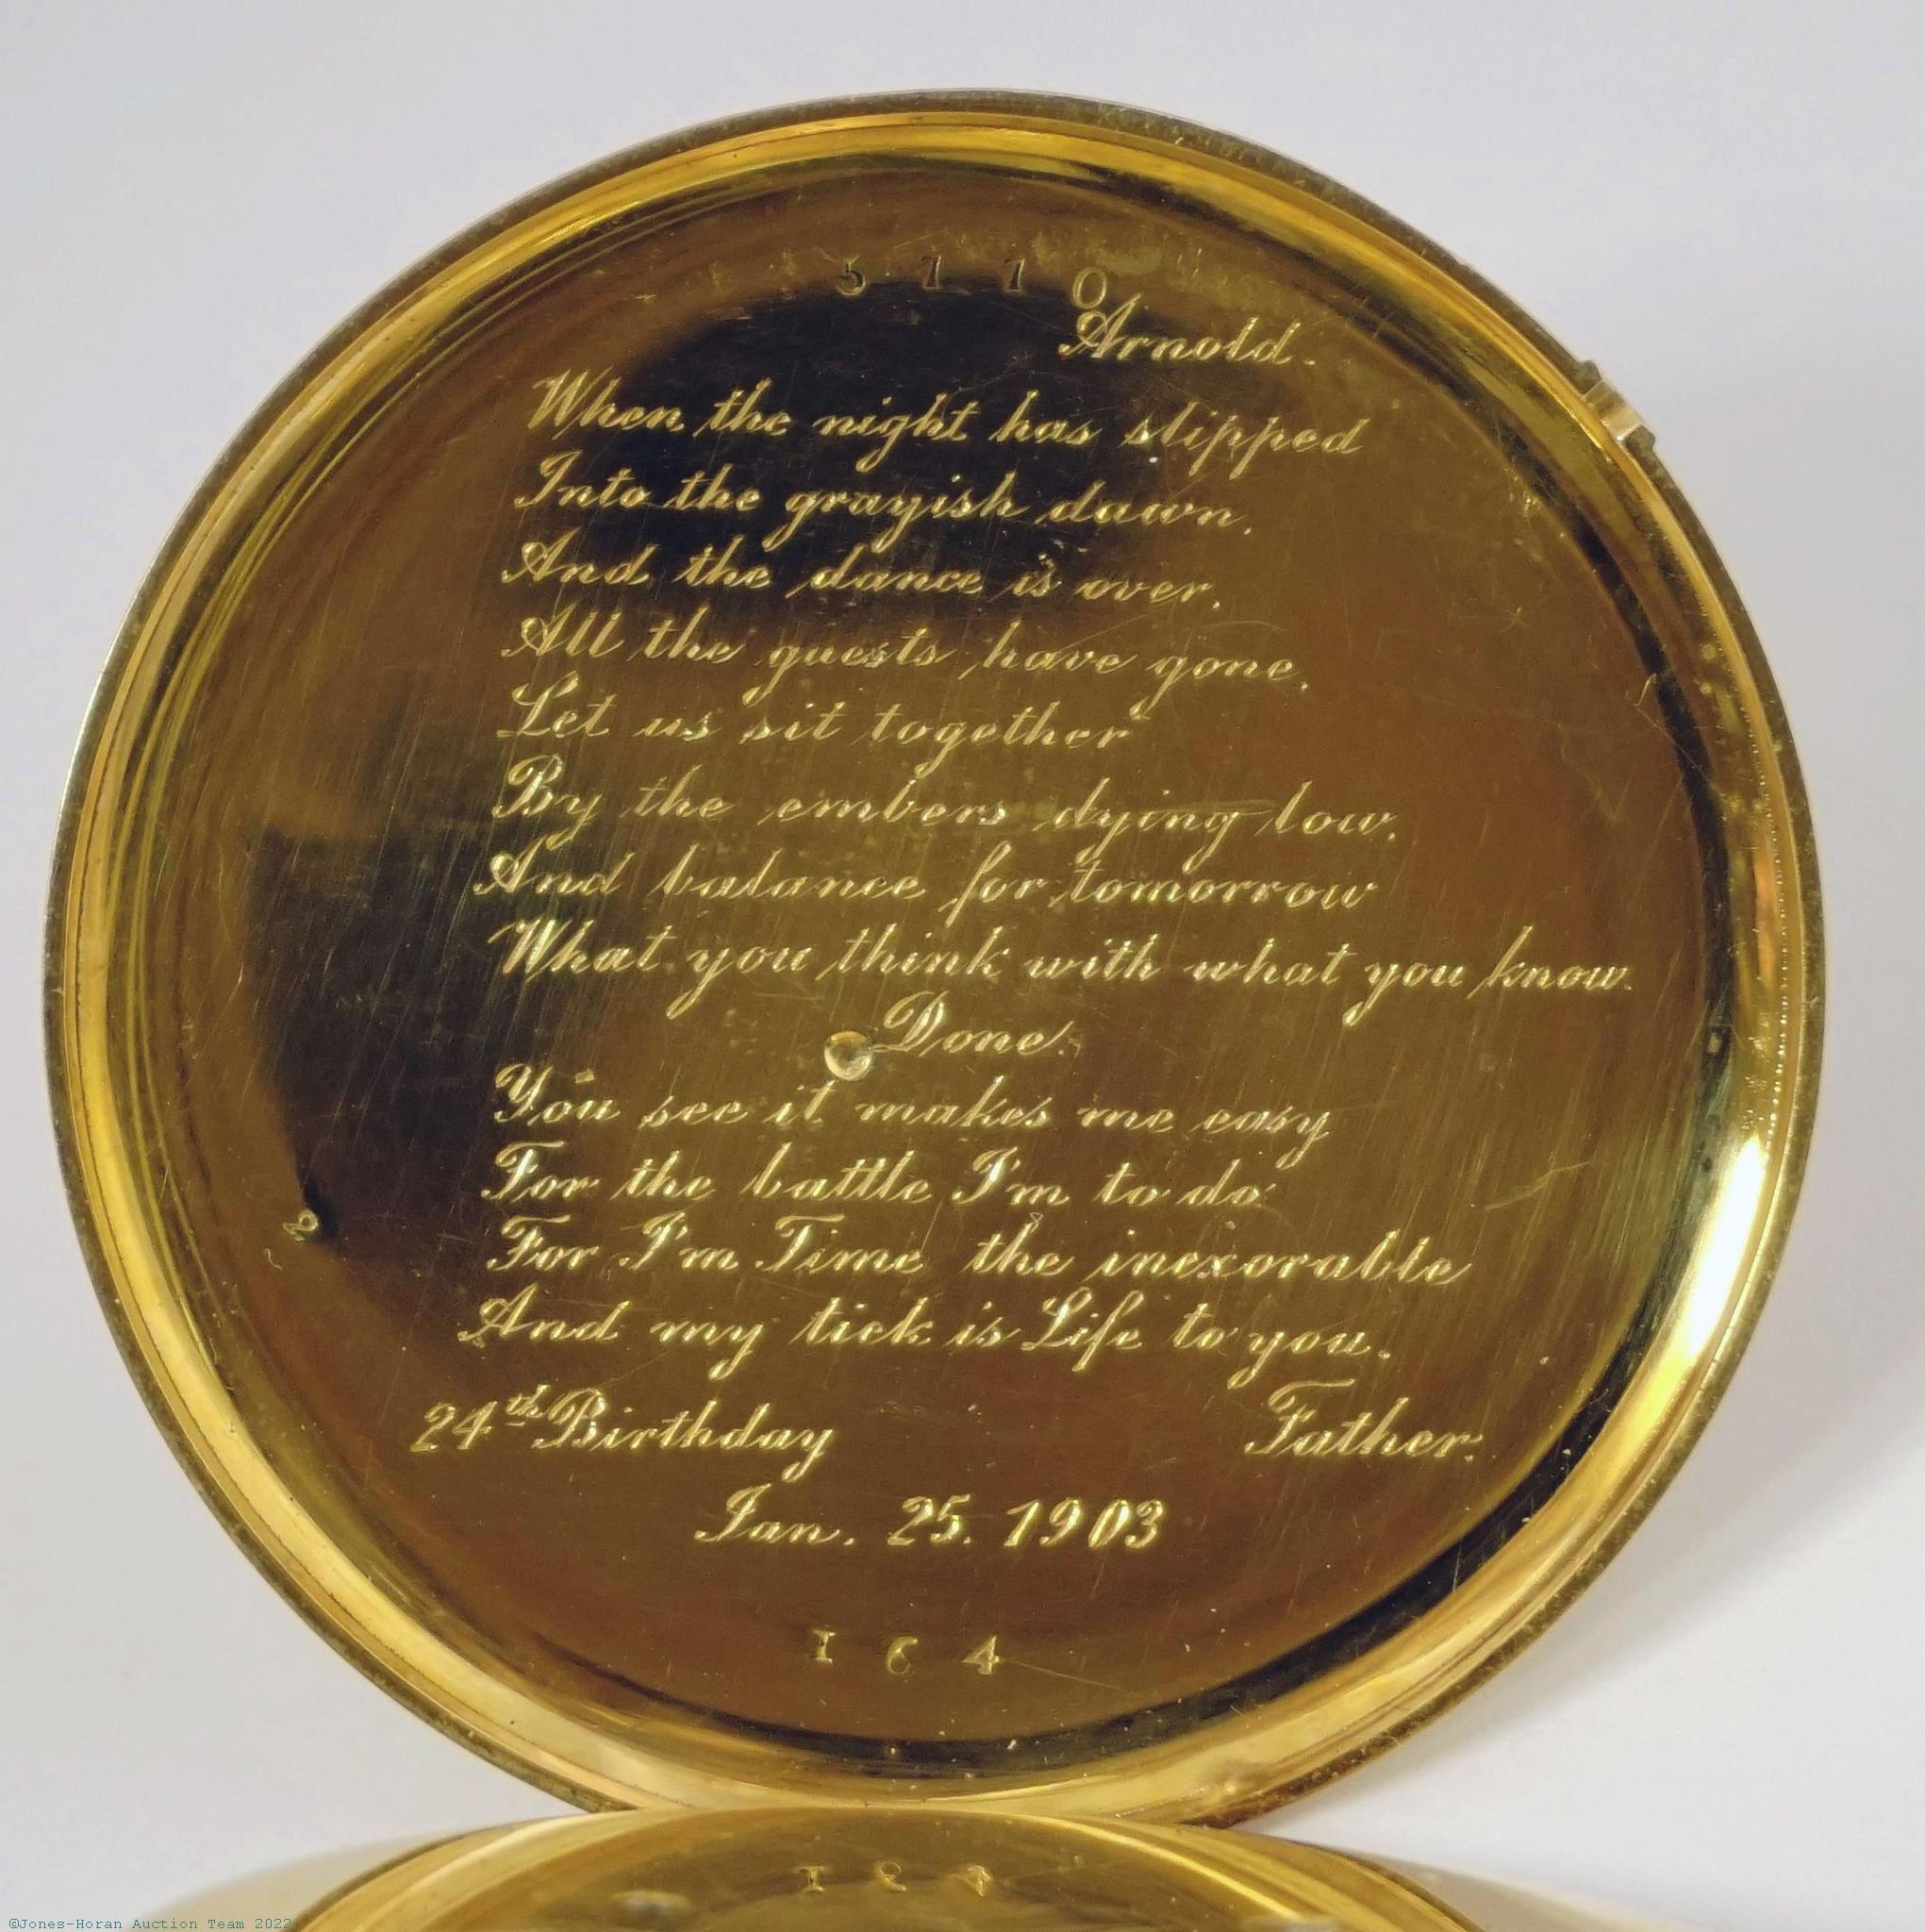 5770
Arnold.
When the night has slipped
Into the grayish dawn,
And the dance is over,
All the guests have gone,
Let us sit together
By the embers dying low,
And balance for tomorrow
What you think with what you know.
Done.
You see it makes me easy
For the battle I'm to do
For I'm Time the inexorable
And my tick is Life to you.
24th Birthday Father.
Jan. 25. 1903
164
164
©Jones-Horan Auction Team 2022